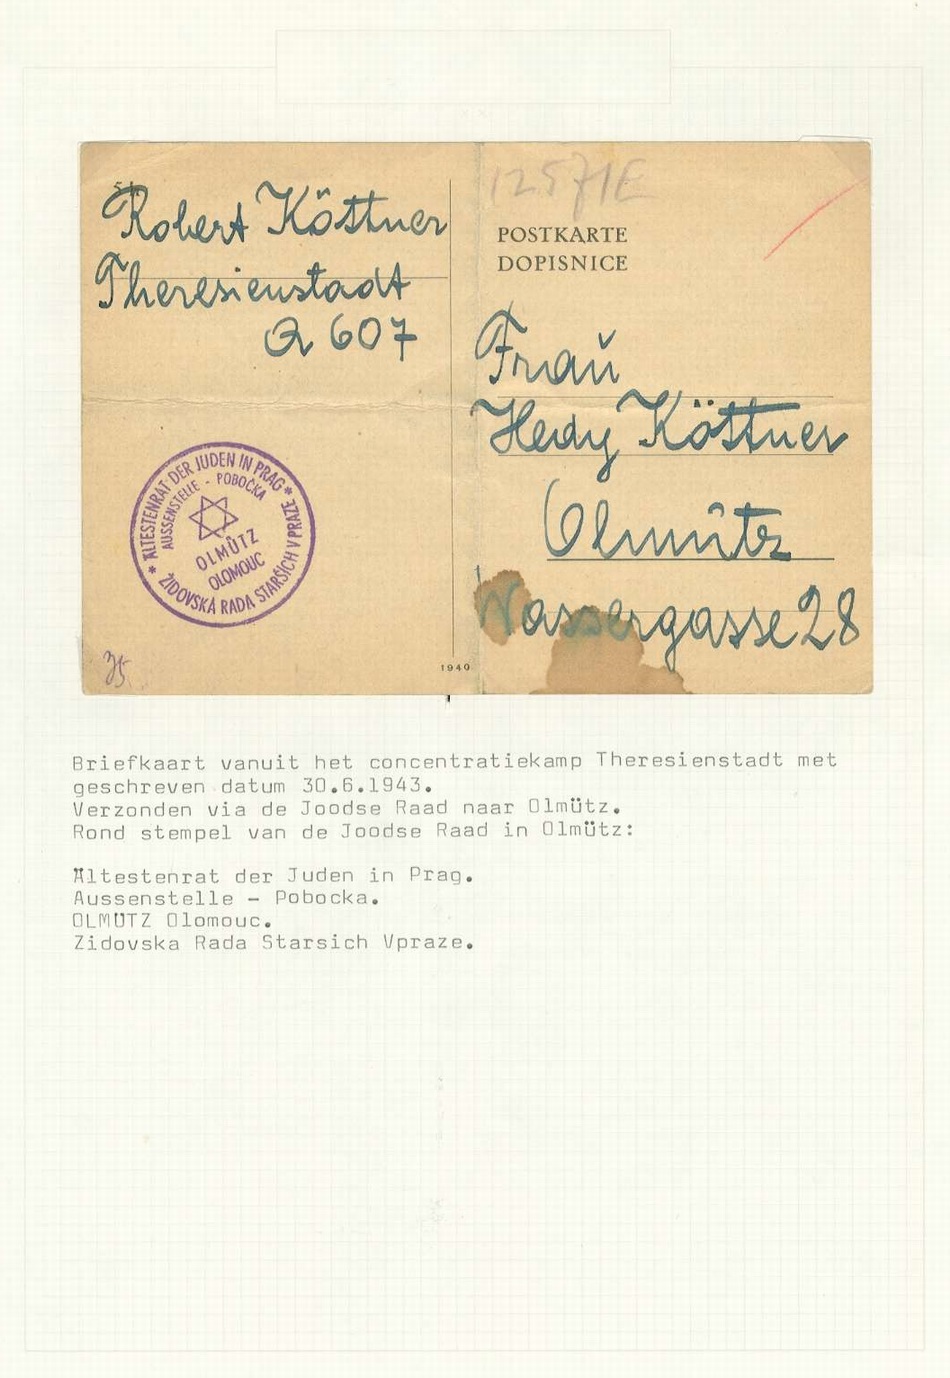 Robert Köttner
Theresienstadt
Q 607
12571E
POSTKARTE
DOPISNICE
Frau
Hedy Köttner
Olmütz
Wassergasse 28
* ÄLTESTENRAT DER JUDEN IN PRAG *
AUSSENSTELLE - POBOČKA
OLMÜTZ
OLOMOUC
ŽIDOVSKÁ RADA STARŠÍCH V PRAZE
1940
Briefkaart vanuit het concentratiekamp Theresienstadt met
geschreven datum 30.6.1943.
Verzonden via de Joodse Raad naar Olmütz.
Rond stempel van de Joodse Raad in Olmütz:
Ältestenrat der Juden in Prag.
Aussenstelle - Pobocka.
OLMÜTZ Olomouc.
Zidovska Rada Starsich Vpraze.